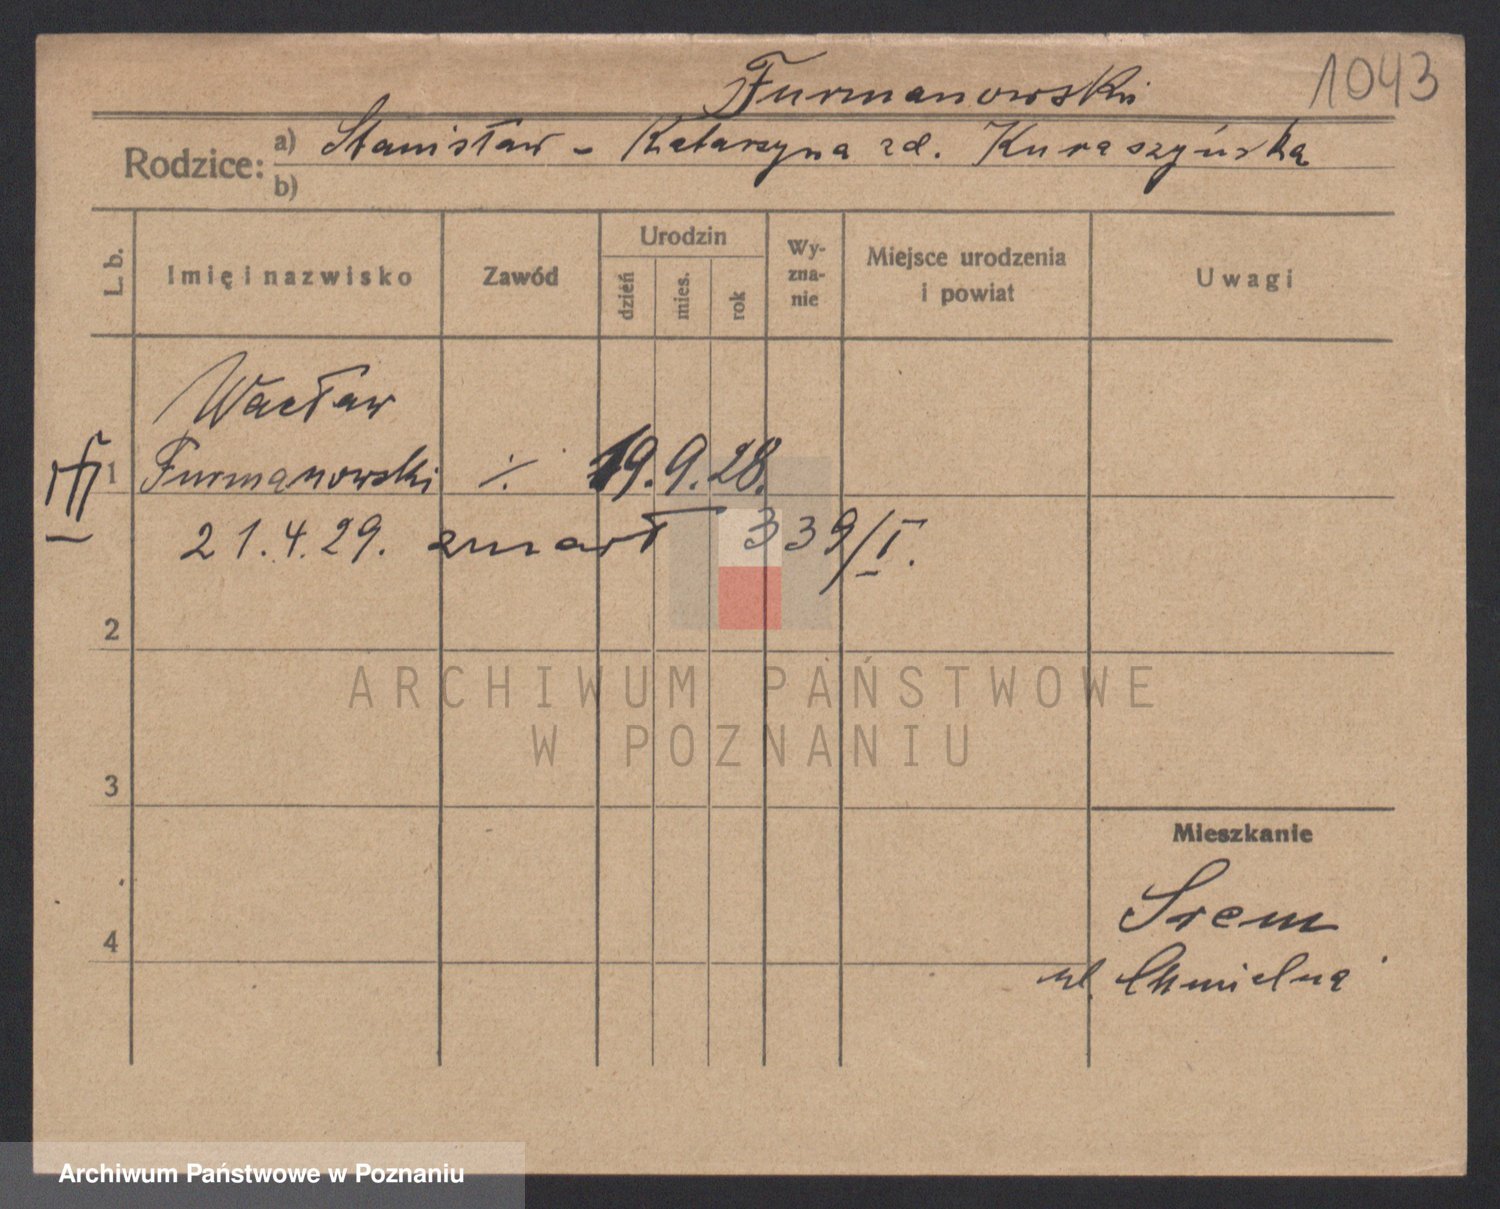 Furmanowski 1043
Rodzice: a) Stanisław - Katarzyna zd. Kuraszyńska
b)
L. b. Imię i nazwisko Zawód Urodzin dzień mies. rok Wy-zna-nie Miejsce urodzenia i powiat Uwagi
Wacław
1 Furmanowski ./. 19. 9. 28.
21.4.29. zmarł 339/I.
2
ARCHIWUM PAŃSTWOWE
W POZNANIU
3
Mieszkanie
Śrem
4
ul. Chmielna
Archiwum Państwowe w Poznaniu